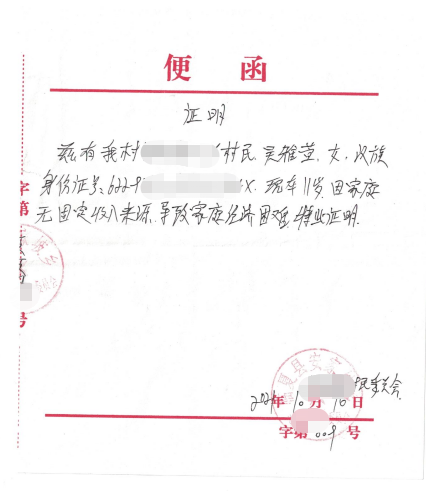 便 函
证明
兹有我村 村民,吴雅萱,女,汉族
身份证号:6229 X.现年11岁,因家庭
无固定收入来源,导致家庭经济困难,特此证明.
村民委员会
2021年10月16日
字第009号
字第
号
县安